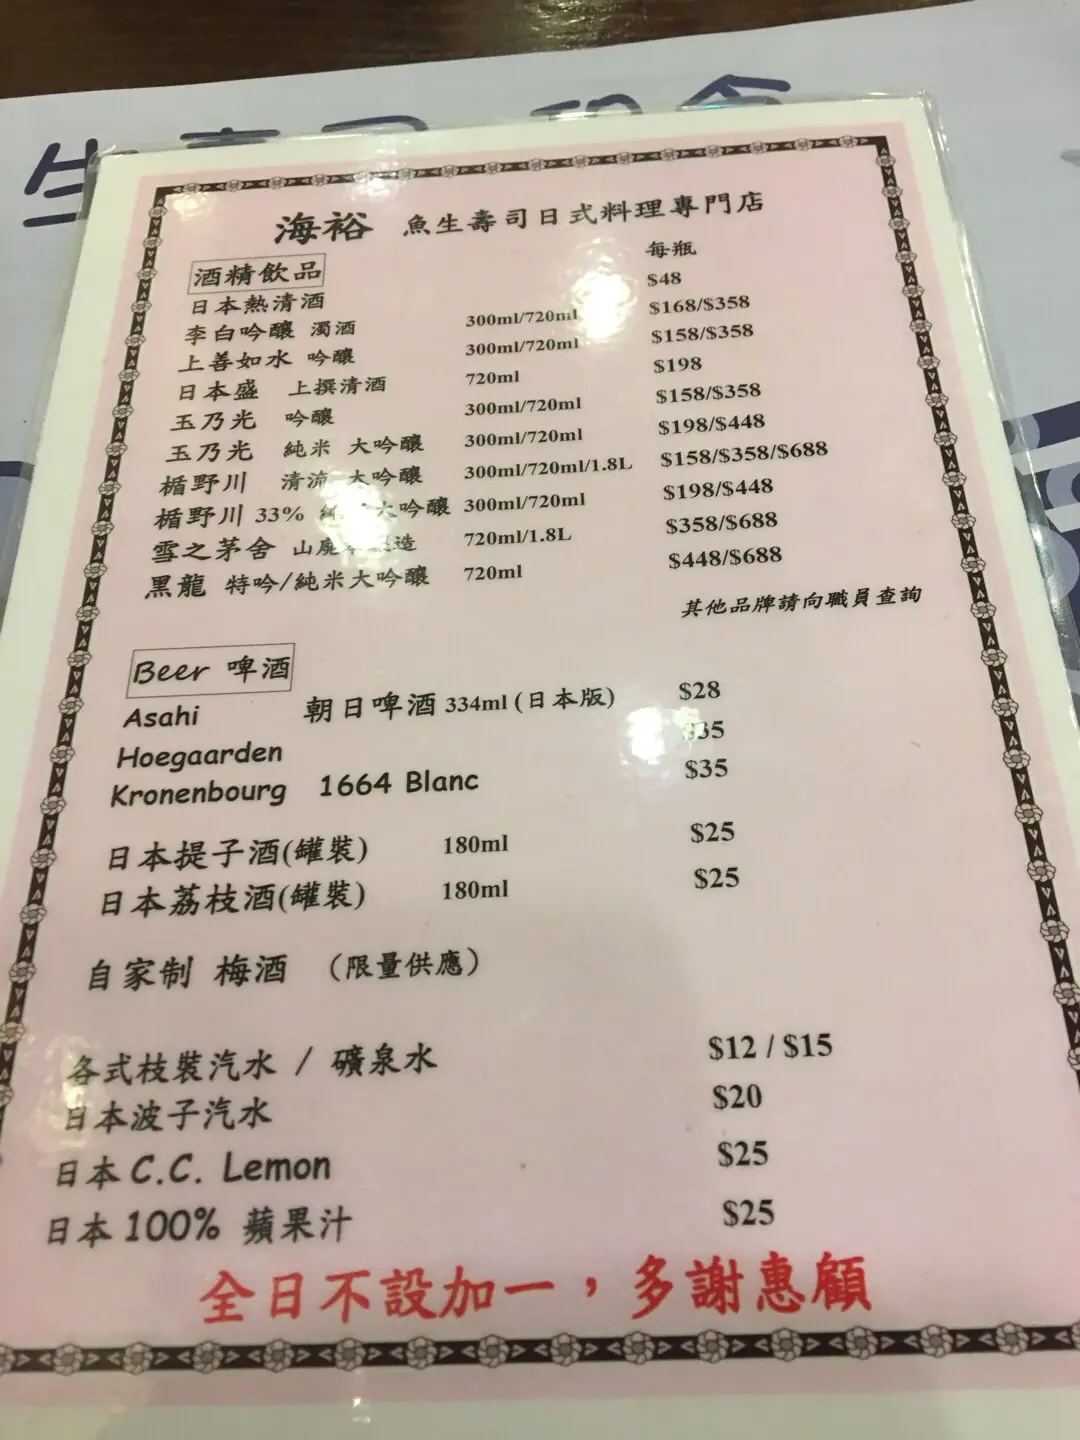 海裕 魚生壽司日式料理專門店
酒精飲品 每瓶
日本熱清酒 $48
李白吟釀 濁酒 300ml/720ml $168/$358
上善如水 吟釀 300ml/720ml $158/$358
日本盛 上撰清酒 720ml $198
玉乃光 吟釀 300ml/720ml $158/$358
玉乃光 純米 大吟釀 300ml/720ml $198/$448
楯野川 清流 大吟釀 300ml/720ml/1.8L $158/$358/$688
楯野川 33% 大吟釀 300ml/720ml $198/$448
雪之茅舍 山廃 造 720ml/1.8L $358/$688
黑龍 特吟/純米大吟釀 720ml $448/$688
其他品牌請向職員查詢
Beer 啤酒
Asahi 朝日啤酒 334ml (日本版) $28
Hoegaarden $35
Kronenbourg 1664 Blanc $35
日本提子酒(罐裝) 180ml $25
日本荔枝酒(罐裝) 180ml $25
自家制 梅酒 （限量供應）
各式枝裝汽水 / 礦泉水 $12 / $15
日本波子汽水 $20
日本 C.C. Lemon $25
日本 100% 蘋果汁 $25
全日不設加一，多謝惠顧